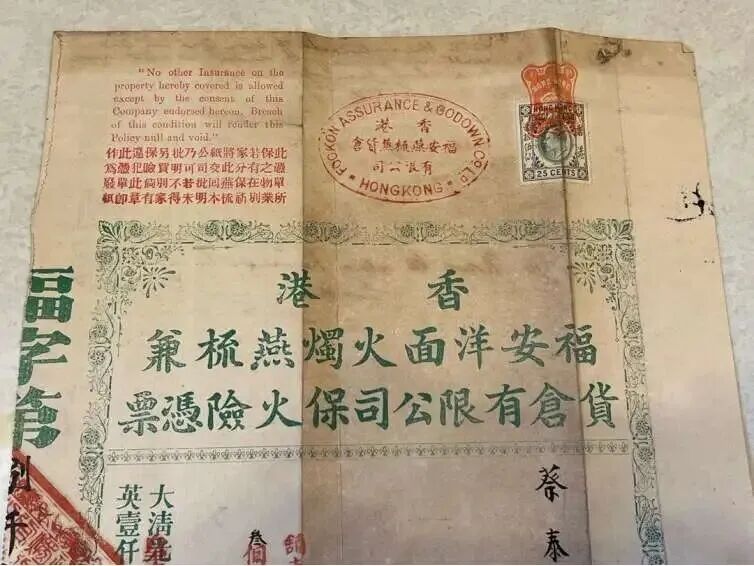 "No other Insurance on the
property hereby covered is allowed
except by the consent of this
Company endorsed hereon. Breach
of this condition will render this
Policy null and void."
此過單所
保之物業
若有在別
家分保祈
將此燕梳
紙交回本
公司批明
乃可若未
批明不得
另買別家
保險倘有
違犯此章
此憑單卽
作為廢紙
FOOKON ASSURANCE & GODOWN CO LD
香港
福安燕梳兼貨倉
有限公司
HONGKONG
HONG KONG
25 CENTS
香港
福安洋面火燭燕梳兼
貨倉有限公司保火險憑票
蔡泰
大清
英壹仟
福字第